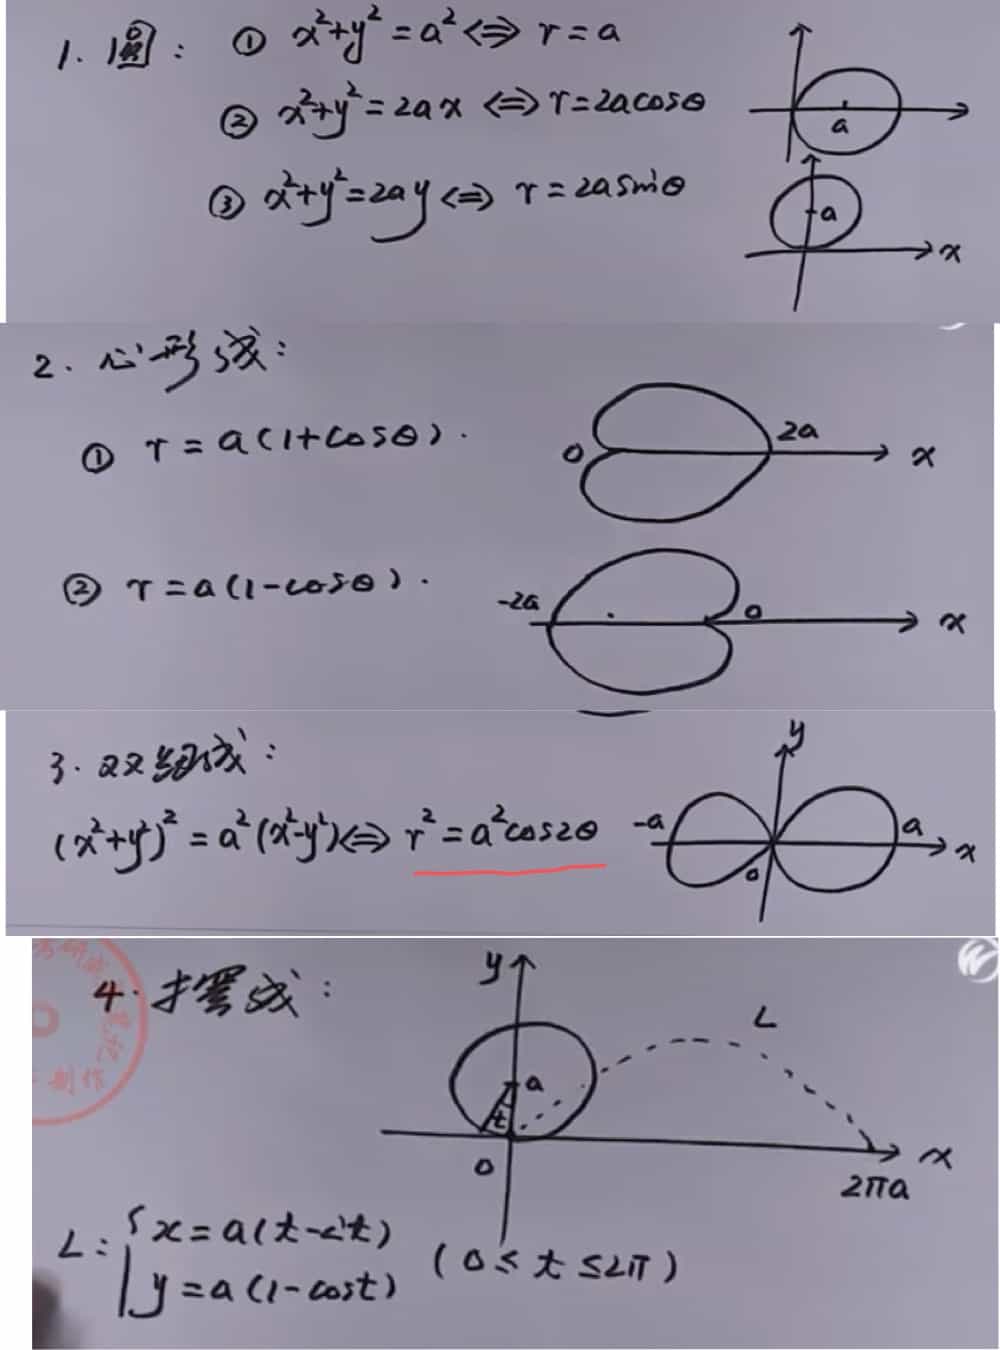 1. 圆:
① x²+y²=a² ⟺ r=a
② x²+y²=2ax ⟺ r=2acosθ
a
③ x²+y²=2ay ⟺ r=2asinθ
a
x
2. 心形线:
① r=a(1+cosθ).
0
2a
x
② r=a(1-cosθ).
-2a
0
x
3. 双纽线:
(x²+y²)²=a²(x²-y²) ⟺ r²=a²cos2θ
y
-a
a
0
x
4. 摆线:
制作
y
L
a
t
0
x
2πa
L: { x=a(t-sit)
y=a(1-cost)
(0≤t≤2π)